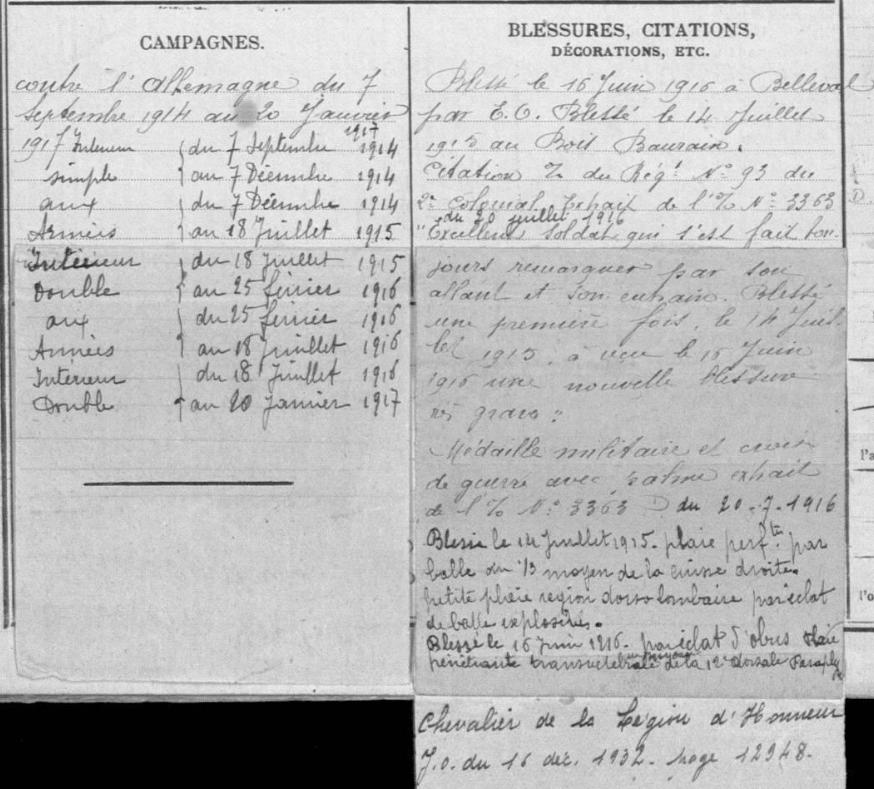 CAMPAGNES.
contre l'Allemagne du 7
Septembre 1914 au 20 Janvier
1917
1917 Intérieur } du 7 Septembre 1914
simple } au 7 Décembre 1914
aux } du 7 Décembre 1914
Armées } au 18 Juillet 1915
Intérieur } du 18 Juillet 1915
Double } au 25 février 1916
aux } du 25 février 1916
Armées } au 18 Juillet 1916
Intérieur } du 18 Juillet 1916
Double } au 20 Janvier 1917
BLESSURES, CITATIONS,
DÉCORATIONS, ETC.
Blessé le 16 Juin 1916 à Belleval
par E.O. Blessé le 14 Juillet
1915 au Bois Baurain.
Citation du Régt No 93 du
2e Colonial. Extrait de l'O No 3363
du 20 juillet 1916
"Excellent soldat qui s'est fait tou-
jours remarquer par son
allant et son entrain. Blessé
une première fois, le 14 Juil-
let 1915, a reçu le 16 Juin
1916 une nouvelle blessure
très grave"
Médaille militaire et croix
de guerre avec palme extrait
de l'O No 3363 D du 20-7-1916
Blessé le 14 Juillet 1915. plaie perfte par
balle du 1/3 moyen de la cuisse droite.
petite plaie region dorso lombaire par éclat
de balle explosible.
Blessé le 16 Juin 1916. par éclat d'obus Plaie
pénétrante transvertebrale de la 12e dorsale
Chevalier de la Légion d'Honneur
J.O. du 16 déc. 1932. page 12948.